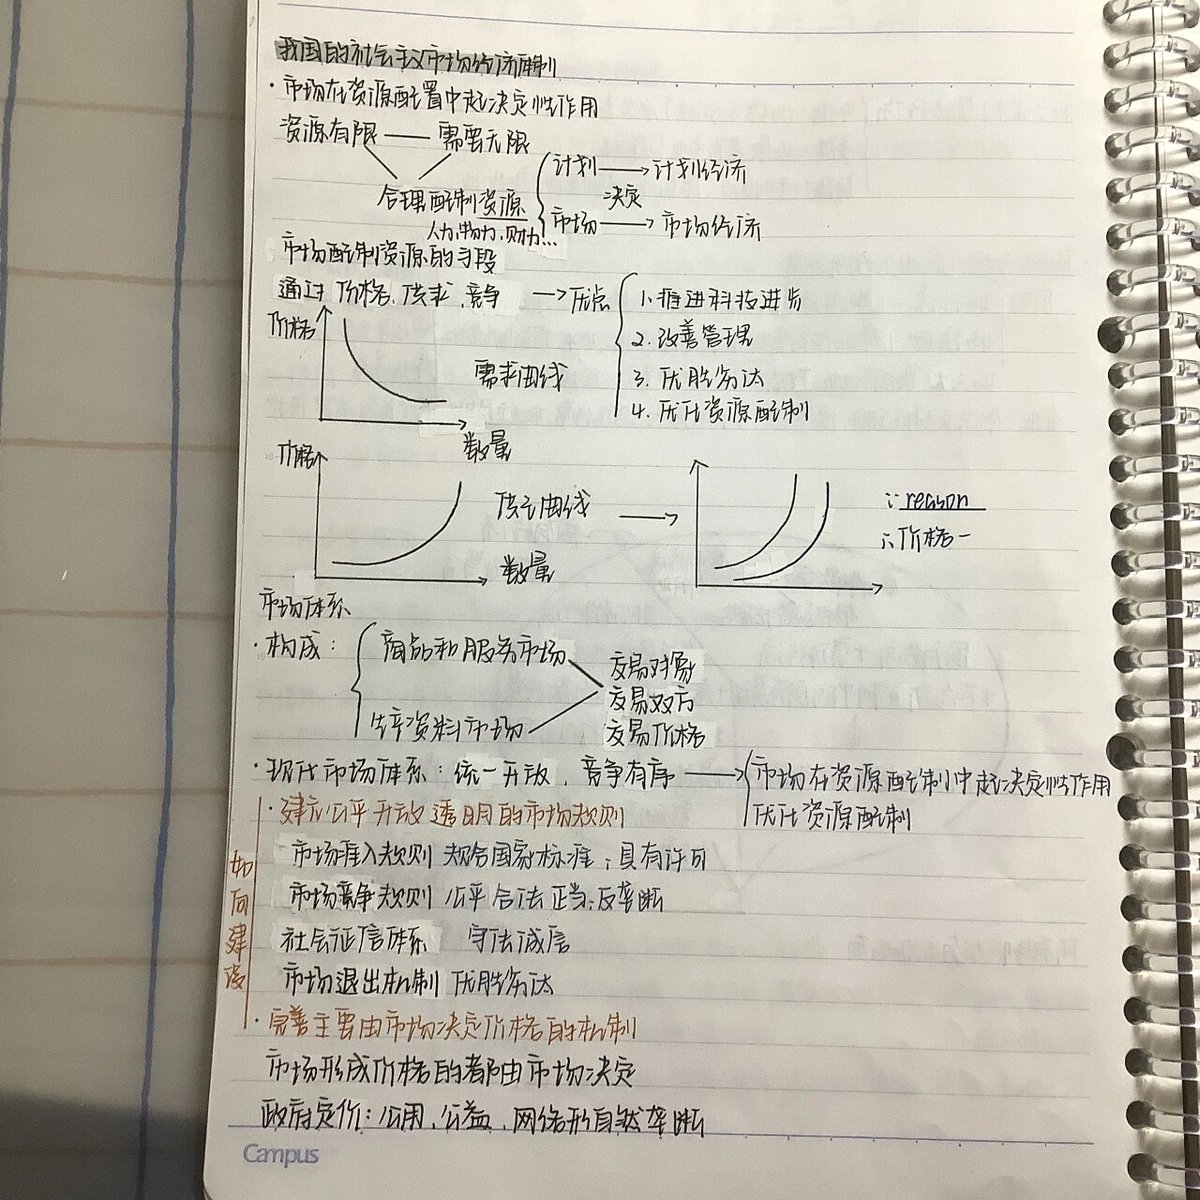 我国的社会主义市场经济体制
·市场在资源配置中起决定性作用
资源有限 — 需要无限
合理配制资源
人力,物力,财力...
计划 → 计划经济
决定
市场 → 市场经济
市场配制资源的手段
通过 价格、供求、竞争 → 优点
1.推进科技进步
2.改善管理
3.优胜劣汰
4.优化资源配制
价格
需求曲线
数量
价格
供给曲线
数量
∵reason
∴价格一
市场体系
·构成:
商品和服务市场
生产资料市场
交易对象
交易双方
交易价格
·现代市场体系:统一开放、竞争有序 → 市场在资源配制中起决定性作用
优化资源配制
如何建设
·建立公平开放透明的市场规则
市场准入规则 规合国家标准;具有许可
市场竞争规则 公平合法正当;反垄断
社会征信体系 守法诚信
市场退出机制 优胜劣汰
·完善主要由市场决定价格的机制
市场形成价格的都由市场决定
政府定价:公用、公益、网络形自然垄断
Campus